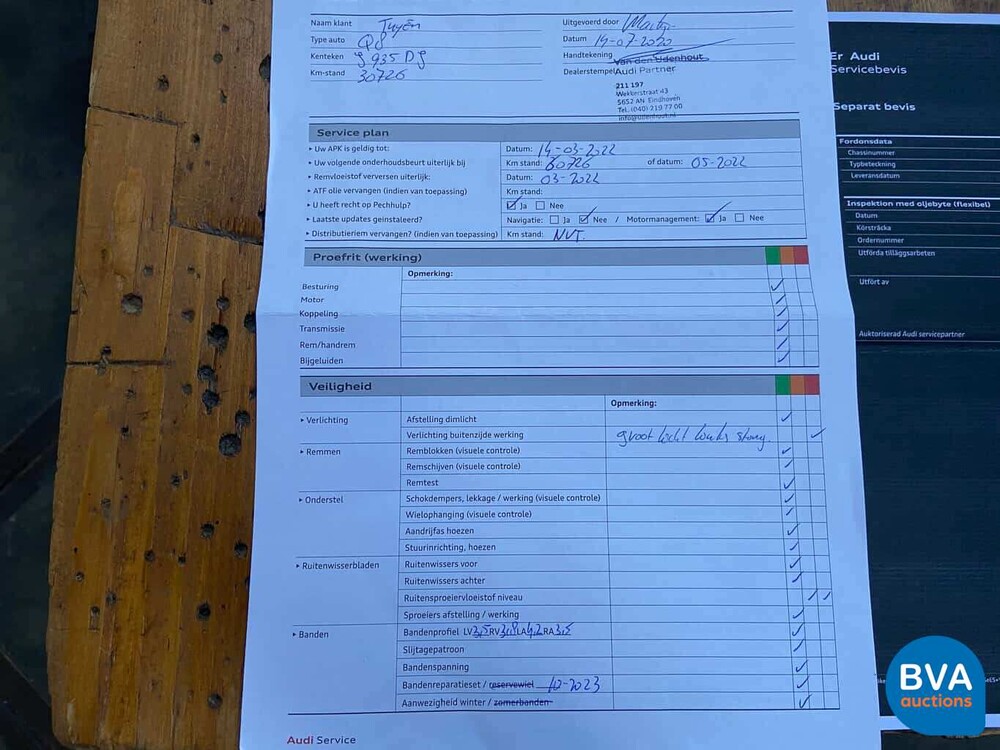 Naam klant Tuyên
Type auto Q8
Kenteken
Km-stand 30726
Uitgevoerd door
Datum 14-07-2020
Handtekening Van den Udenhout
Dealerstempel Audi Partner
211 197
Wekkerstraat 43
5652 AN Eindhoven
Tel. (040) 219 77 00
info@udenhout.nl
Service plan
▸ Uw APK is geldig tot: Datum: 14-03-2022
▸ Uw volgende onderhoudsbeurt uiterlijk bij Km stand: 60726 of datum: 05-2022
▸ Remvloeistof verversen uiterlijk: Datum: 03-2022
▸ ATF olie vervangen (indien van toepassing) Km stand:
▸ U heeft recht op Pechhulp? Ja Nee
▸ Laatste updates geinstaleerd? Navigatie: Ja Nee / Motormanagement: Ja Nee
▸ Distributieriem vervangen? (indien van toepassing) Km stand: NVT.
Proefrit (werking)
Opmerking:
Besturing
Motor
Koppeling
Transmissie
Rem/handrem
Bijgeluiden
Veiligheid
Opmerking:
▸ Verlichting Afstelling dimlicht
Verlichting buitenzijde werking groot licht links
▸ Remmen Remblokken (visuele controle)
Remschijven (visuele controle)
Remtest
▸ Onderstel Schokdempers, lekkage / werking (visuele controle)
Wielophanging (visuele controle)
Aandrijfas hoezen
Stuurinrichting, hoezen
▸ Ruitenwisserbladen Ruitenwissers voor
Ruitenwissers achter
Ruitensproeiervloeistof niveau
Sproeiers afstelling / werking
▸ Banden Bandenprofiel LV 3,5 RV 3,8 LA 4,2 RA 3,5
Slijtagepatroon
Bandenspanning
Bandenreparatieset / reservewiel 10-2023
Aanwezigheid winter / zomerbanden
Audi Service
Er Audi
Servicebevis
Separat bevis
Fordonsdata
Chassinummer
Typbeteckning
Leveransdatum
Inspektion med oljebyte (flexibel)
Datum
Körsträcka
Ordernummer
Utförda tilläggsarbeten
Utfört av
Auktoriserad Audi servicepartner
BVA
auctions